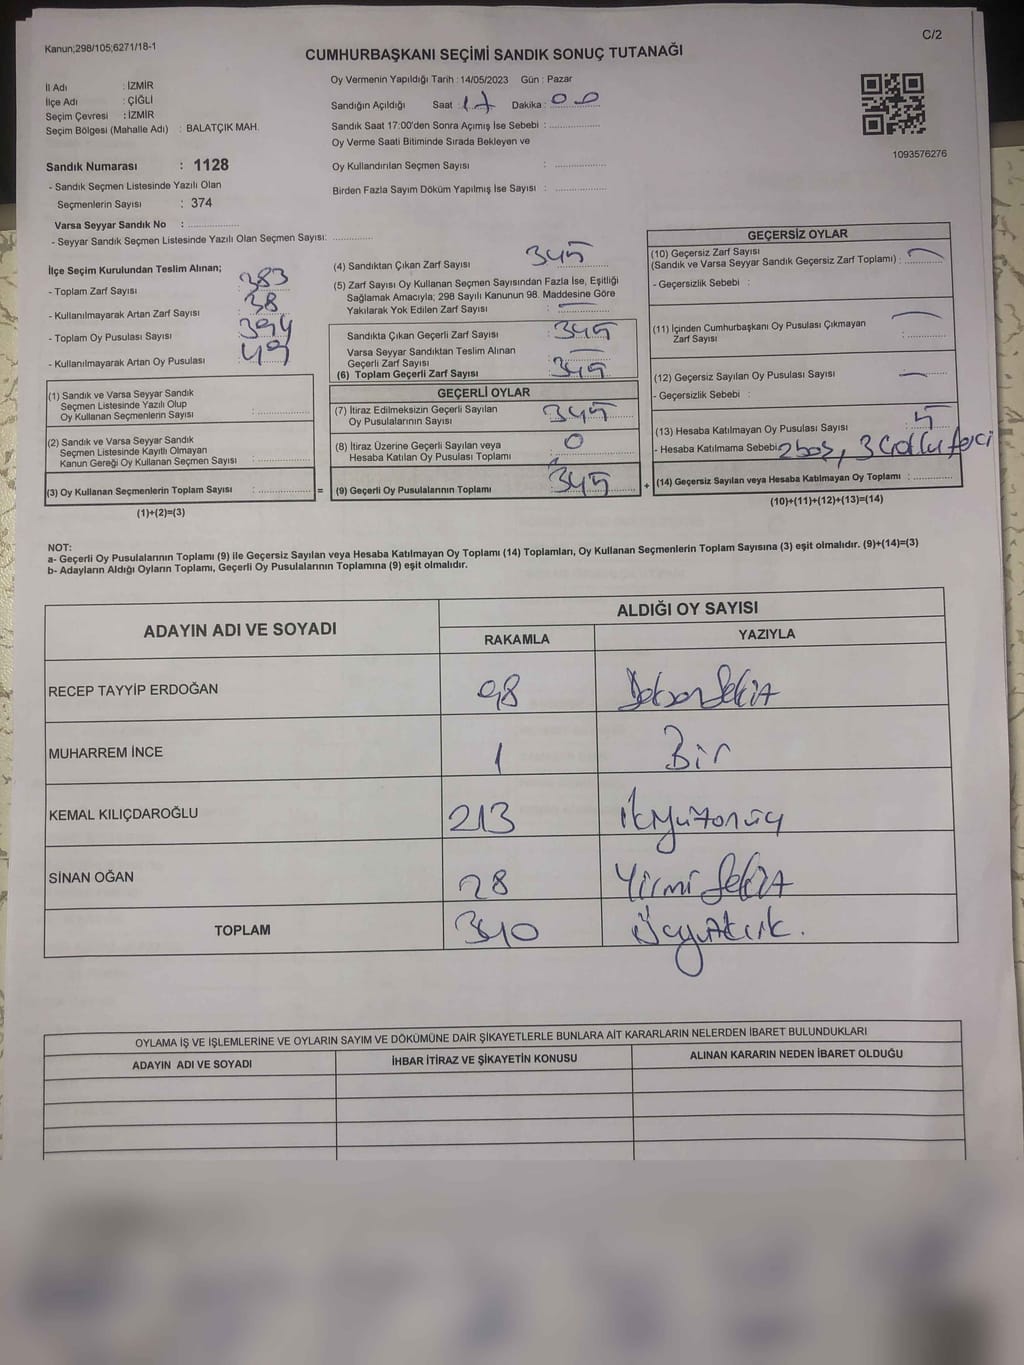 Kanun;298/105;6271/18-1
C/2
CUMHURBAŞKANI SEÇİMİ SANDIK SONUÇ TUTANAĞI
İl Adı : İZMİR
İlçe Adı : ÇİĞLİ
Seçim Çevresi : İZMİR
Seçim Bölgesi (Mahalle Adı) : BALATÇIK MAH.
Sandık Numarası : 1128
- Sandık Seçmen Listesinde Yazılı Olan
Seçmenlerin Sayısı : 374
Varsa Seyyar Sandık No : ..................
- Seyyar Sandık Seçmen Listesinde Yazılı Olan Seçmen Sayısı: .............
Oy Vermenin Yapıldığı Tarih : 14/05/2023 Gün : Pazar
Sandığın Açıldığı Saat : 17 Dakika : 00
Sandık Saat 17:00'den Sonra Açımış İse Sebebi : .................
Oy Verme Saati Bitiminde Sırada Bekleyen ve
Oy Kullandırılan Seçmen Sayısı : .................
Birden Fazla Sayım Döküm Yapılmış İse Sayısı : .................
1093576276
İlçe Seçim Kurulundan Teslim Alınan;
- Toplam Zarf Sayısı 383
- Kullanılmayarak Artan Zarf Sayısı 38
- Toplam Oy Pusulası Sayısı 394
- Kullanılmayarak Artan Oy Pusulası 49
(1) Sandık ve Varsa Seyyar Sandık
Seçmen Listesinde Yazılı Olup
Oy Kullanan Seçmenlerin Sayısı : .................
(2) Sandık ve Varsa Seyyar Sandık
Seçmen Listesinde Kayıtlı Olmayan
Kanun Gereği Oy Kullanan Seçmen Sayısı : .................
(3) Oy Kullanan Seçmenlerin Toplam Sayısı : ................. =
(1)+(2)=(3)
(4) Sandıktan Çıkan Zarf Sayısı 345
(5) Zarf Sayısı Oy Kullanan Seçmen Sayısından Fazla İse, Eşitliği
Sağlamak Amacıyla; 298 Sayılı Kanunun 98. Maddesine Göre
Yakılarak Yok Edilen Zarf Sayısı : —
Sandıkta Çıkan Geçerli Zarf Sayısı : 345
Varsa Seyyar Sandıktan Teslim Alınan
Geçerli Zarf Sayısı : —
(6) Toplam Geçerli Zarf Sayısı : 345
GEÇERLİ OYLAR
(7) İtiraz Edilmeksizin Geçerli Sayılan
Oy Pusulalarının Sayısı : 345
(8) İtiraz Üzerine Geçerli Sayılan veya
Hesaba Katılan Oy Pusulası Toplamı : 0
(9) Geçerli Oy Pusulalarının Toplamı 345 +
GEÇERSİZ OYLAR
(10) Geçersiz Zarf Sayısı
(Sandık ve Varsa Seyyar Sandık Geçersiz Zarf Toplamı) : —
- Geçersizlik Sebebi :
(11) İçinden Cumhurbaşkanı Oy Pusulası Çıkmayan
Zarf Sayısı : —
(12) Geçersiz Sayılan Oy Pusulası Sayısı : —
- Geçersizlik Sebebi :
(13) Hesaba Katılmayan Oy Pusulası Sayısı : 5
- Hesaba Katılmama Sebebi: 2 boş, 3
(14) Geçersiz Sayılan veya Hesaba Katılmayan Oy Toplamı : .............
(10)+(11)+(12)+(13)=(14)
NOT:
a- Geçerli Oy Pusulalarının Toplamı (9) ile Geçersiz Sayılan veya Hesaba Katılmayan Oy Toplamı (14) Toplamları, Oy Kullanan Seçmenlerin Toplam Sayısına (3) eşit olmalıdır. (9)+(14)=(3)
b- Adayların Aldığı Oyların Toplamı, Geçerli Oy Pusulalarının Toplamına (9) eşit olmalıdır.
ADAYIN ADI VE SOYADI
ALDIĞI OY SAYISI
RAKAMLA YAZIYLA
RECEP TAYYİP ERDOĞAN 98 Doksan Sekiz
MUHARREM İNCE 1 Bir
KEMAL KILIÇDAROĞLU 213 ikiyüzonüç
SİNAN OĞAN 28 Yirmi Sekiz
TOPLAM 340 Üçyüzkırk.
OYLAMA İŞ VE İŞLEMLERİNE VE OYLARIN SAYIM VE DÖKÜMÜNE DAİR ŞİKAYETLERLE BUNLARA AİT KARARLARIN NELERDEN İBARET BULUNDUKLARI
ADAYIN ADI VE SOYADI İHBAR İTİRAZ VE ŞİKAYETİN KONUSU ALINAN KARARIN NEDEN İBARET OLDUĞU